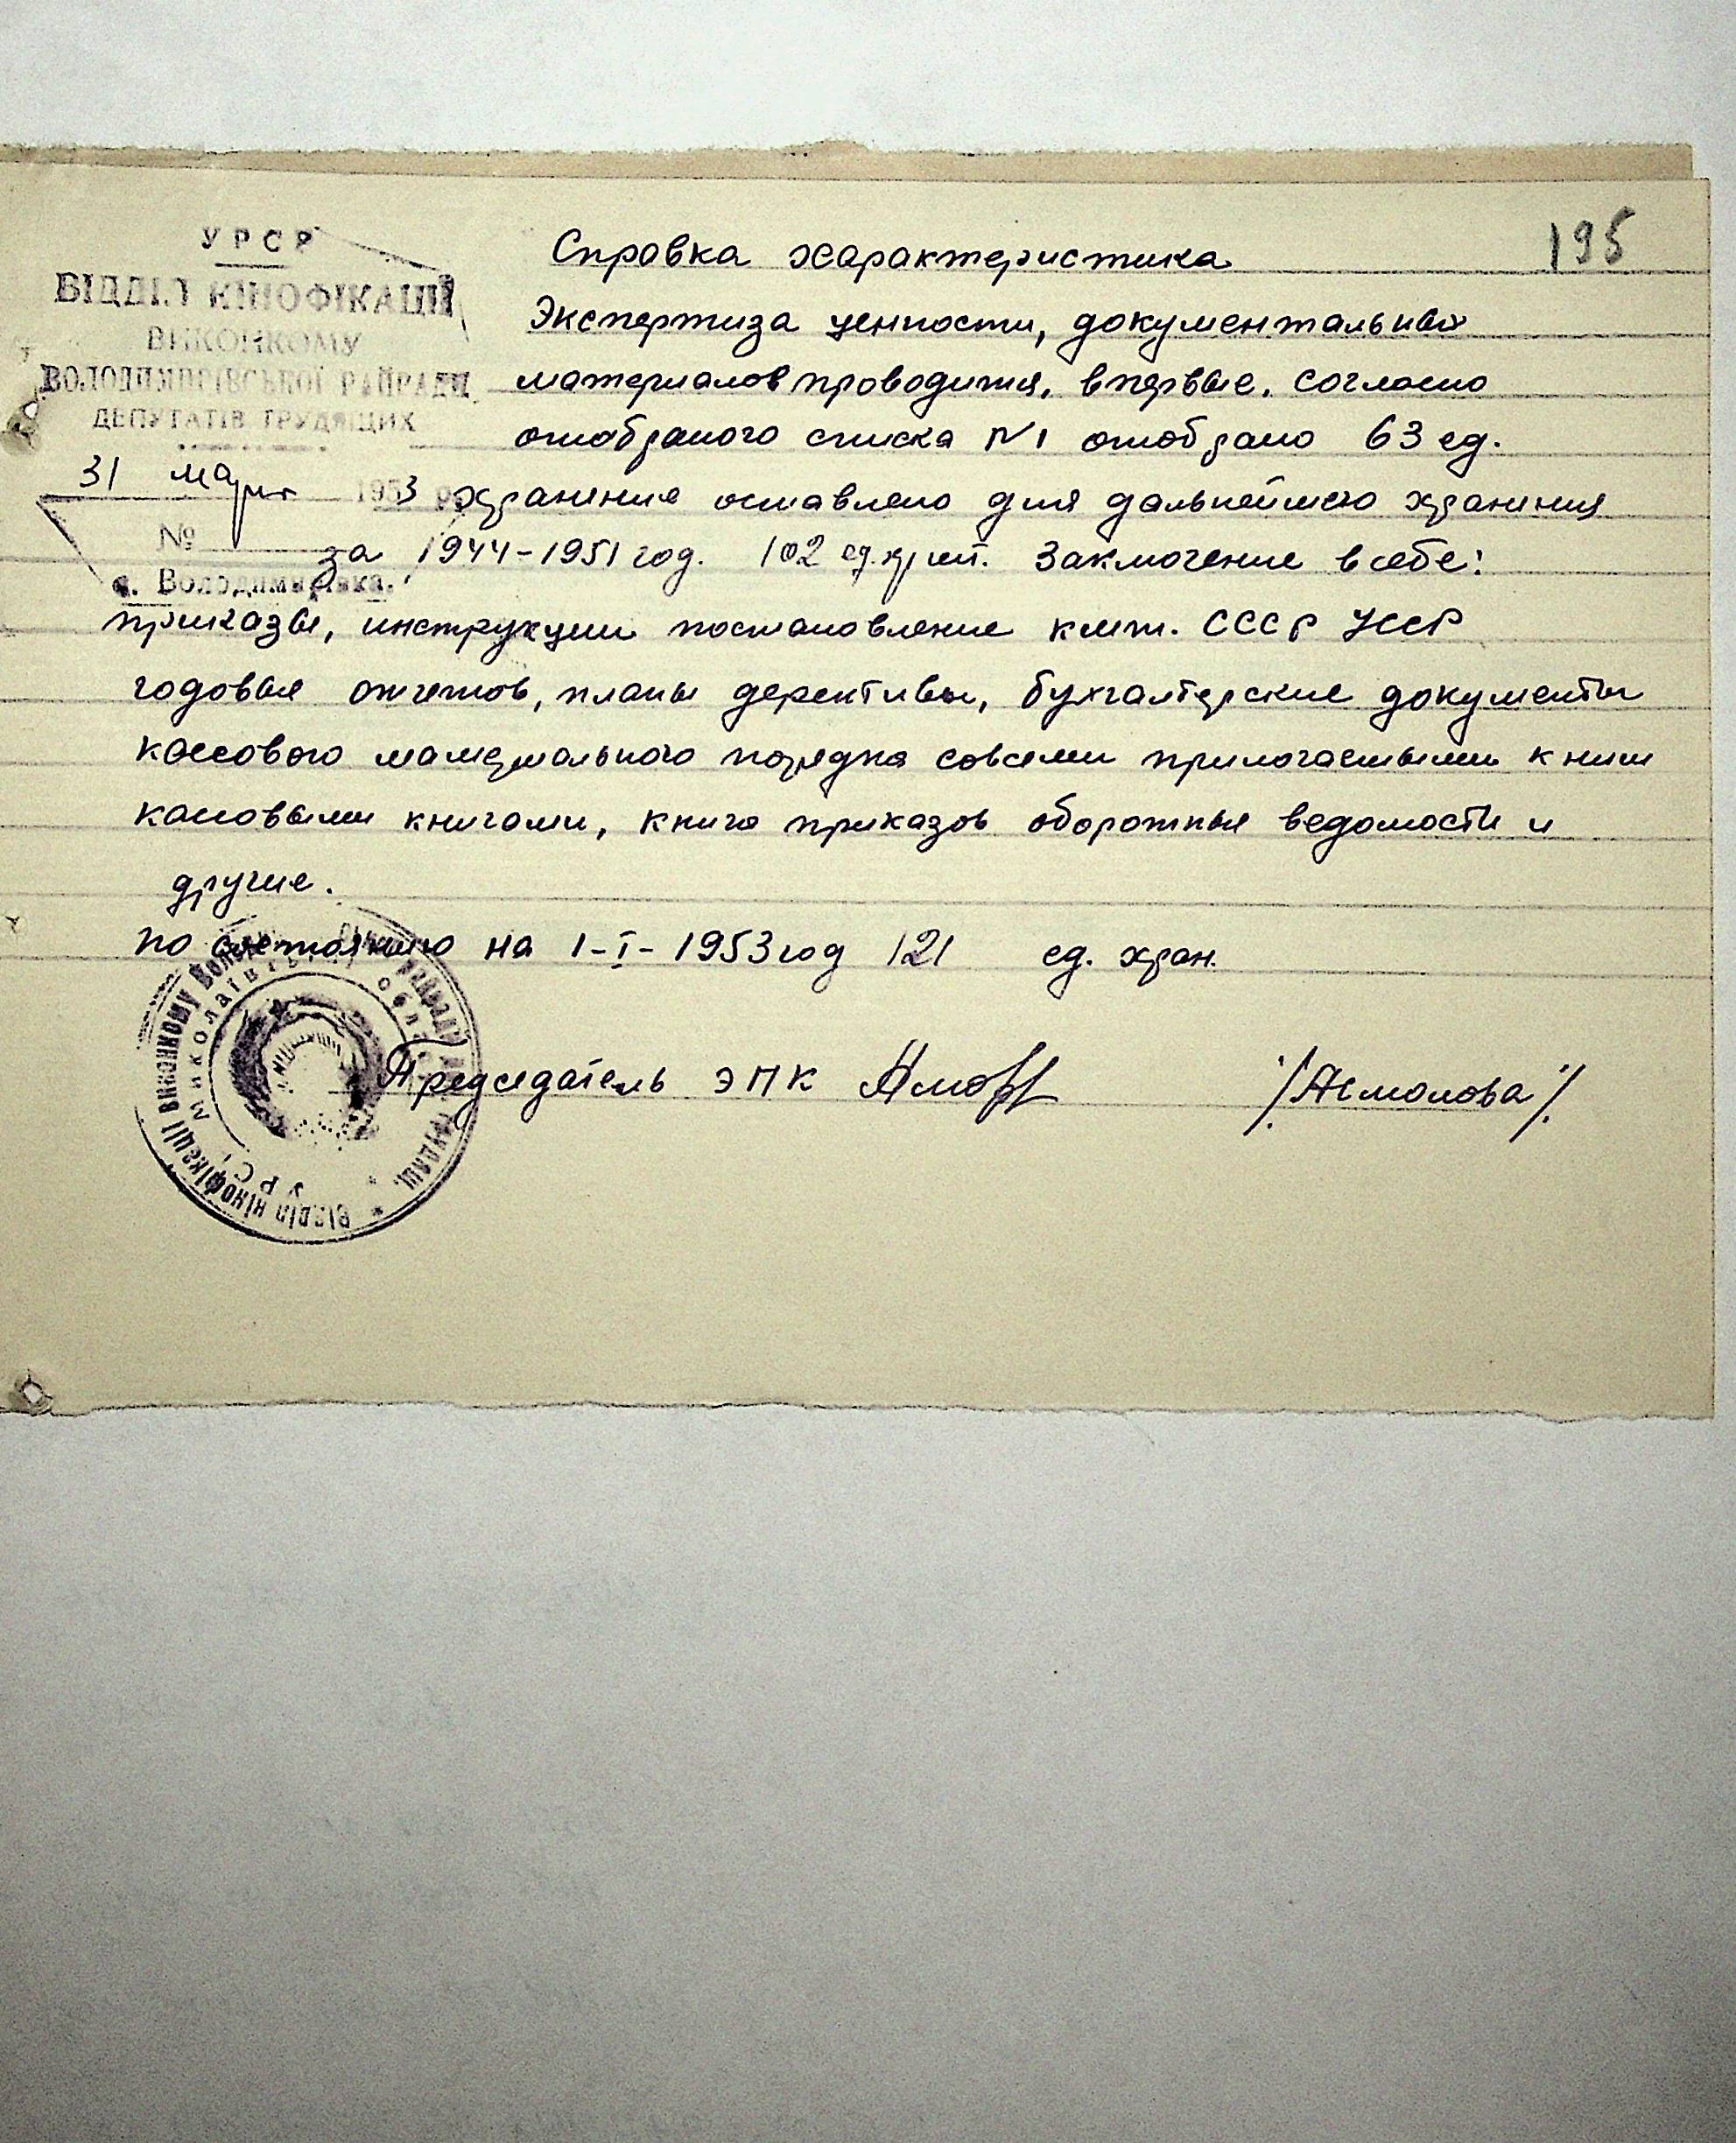 195
УРСР
ВІДДІЛ КІНОФІКАЦІЇ
ВИКОНКОМУ
ВОЛОДИМИРІВСЬКОЇ РАЙРАДИ
ДЕПУТАТІВ ТРУДЯЩИХ
31 марта 1953 р.
№
с. Володимирівка.
Справка характеристика
Экспертиза ценности, документальных
материалов проводится, впервые. согласно
отобраного списка №1 отобрано 63 ед.
хранение оставлено для дальнейшего хранения
за 1944-1951 год. 102 ед. Заключение в себе:
приказы, инструкции постановление СССР УССР
годовые отчетов, планы дерективы, бухгалтерские документы
кассового материального порядка совсеми прилогаемыми к ним
кассовыми книгами, книга приказов оборотные ведомости и
другие.
по состоянию на 1-I-1953 год 121 ед. хран.
Председатель ЭПК /Асмолова/
Відділ кінофікації виконкому
Миколаївської обл.
УРСР